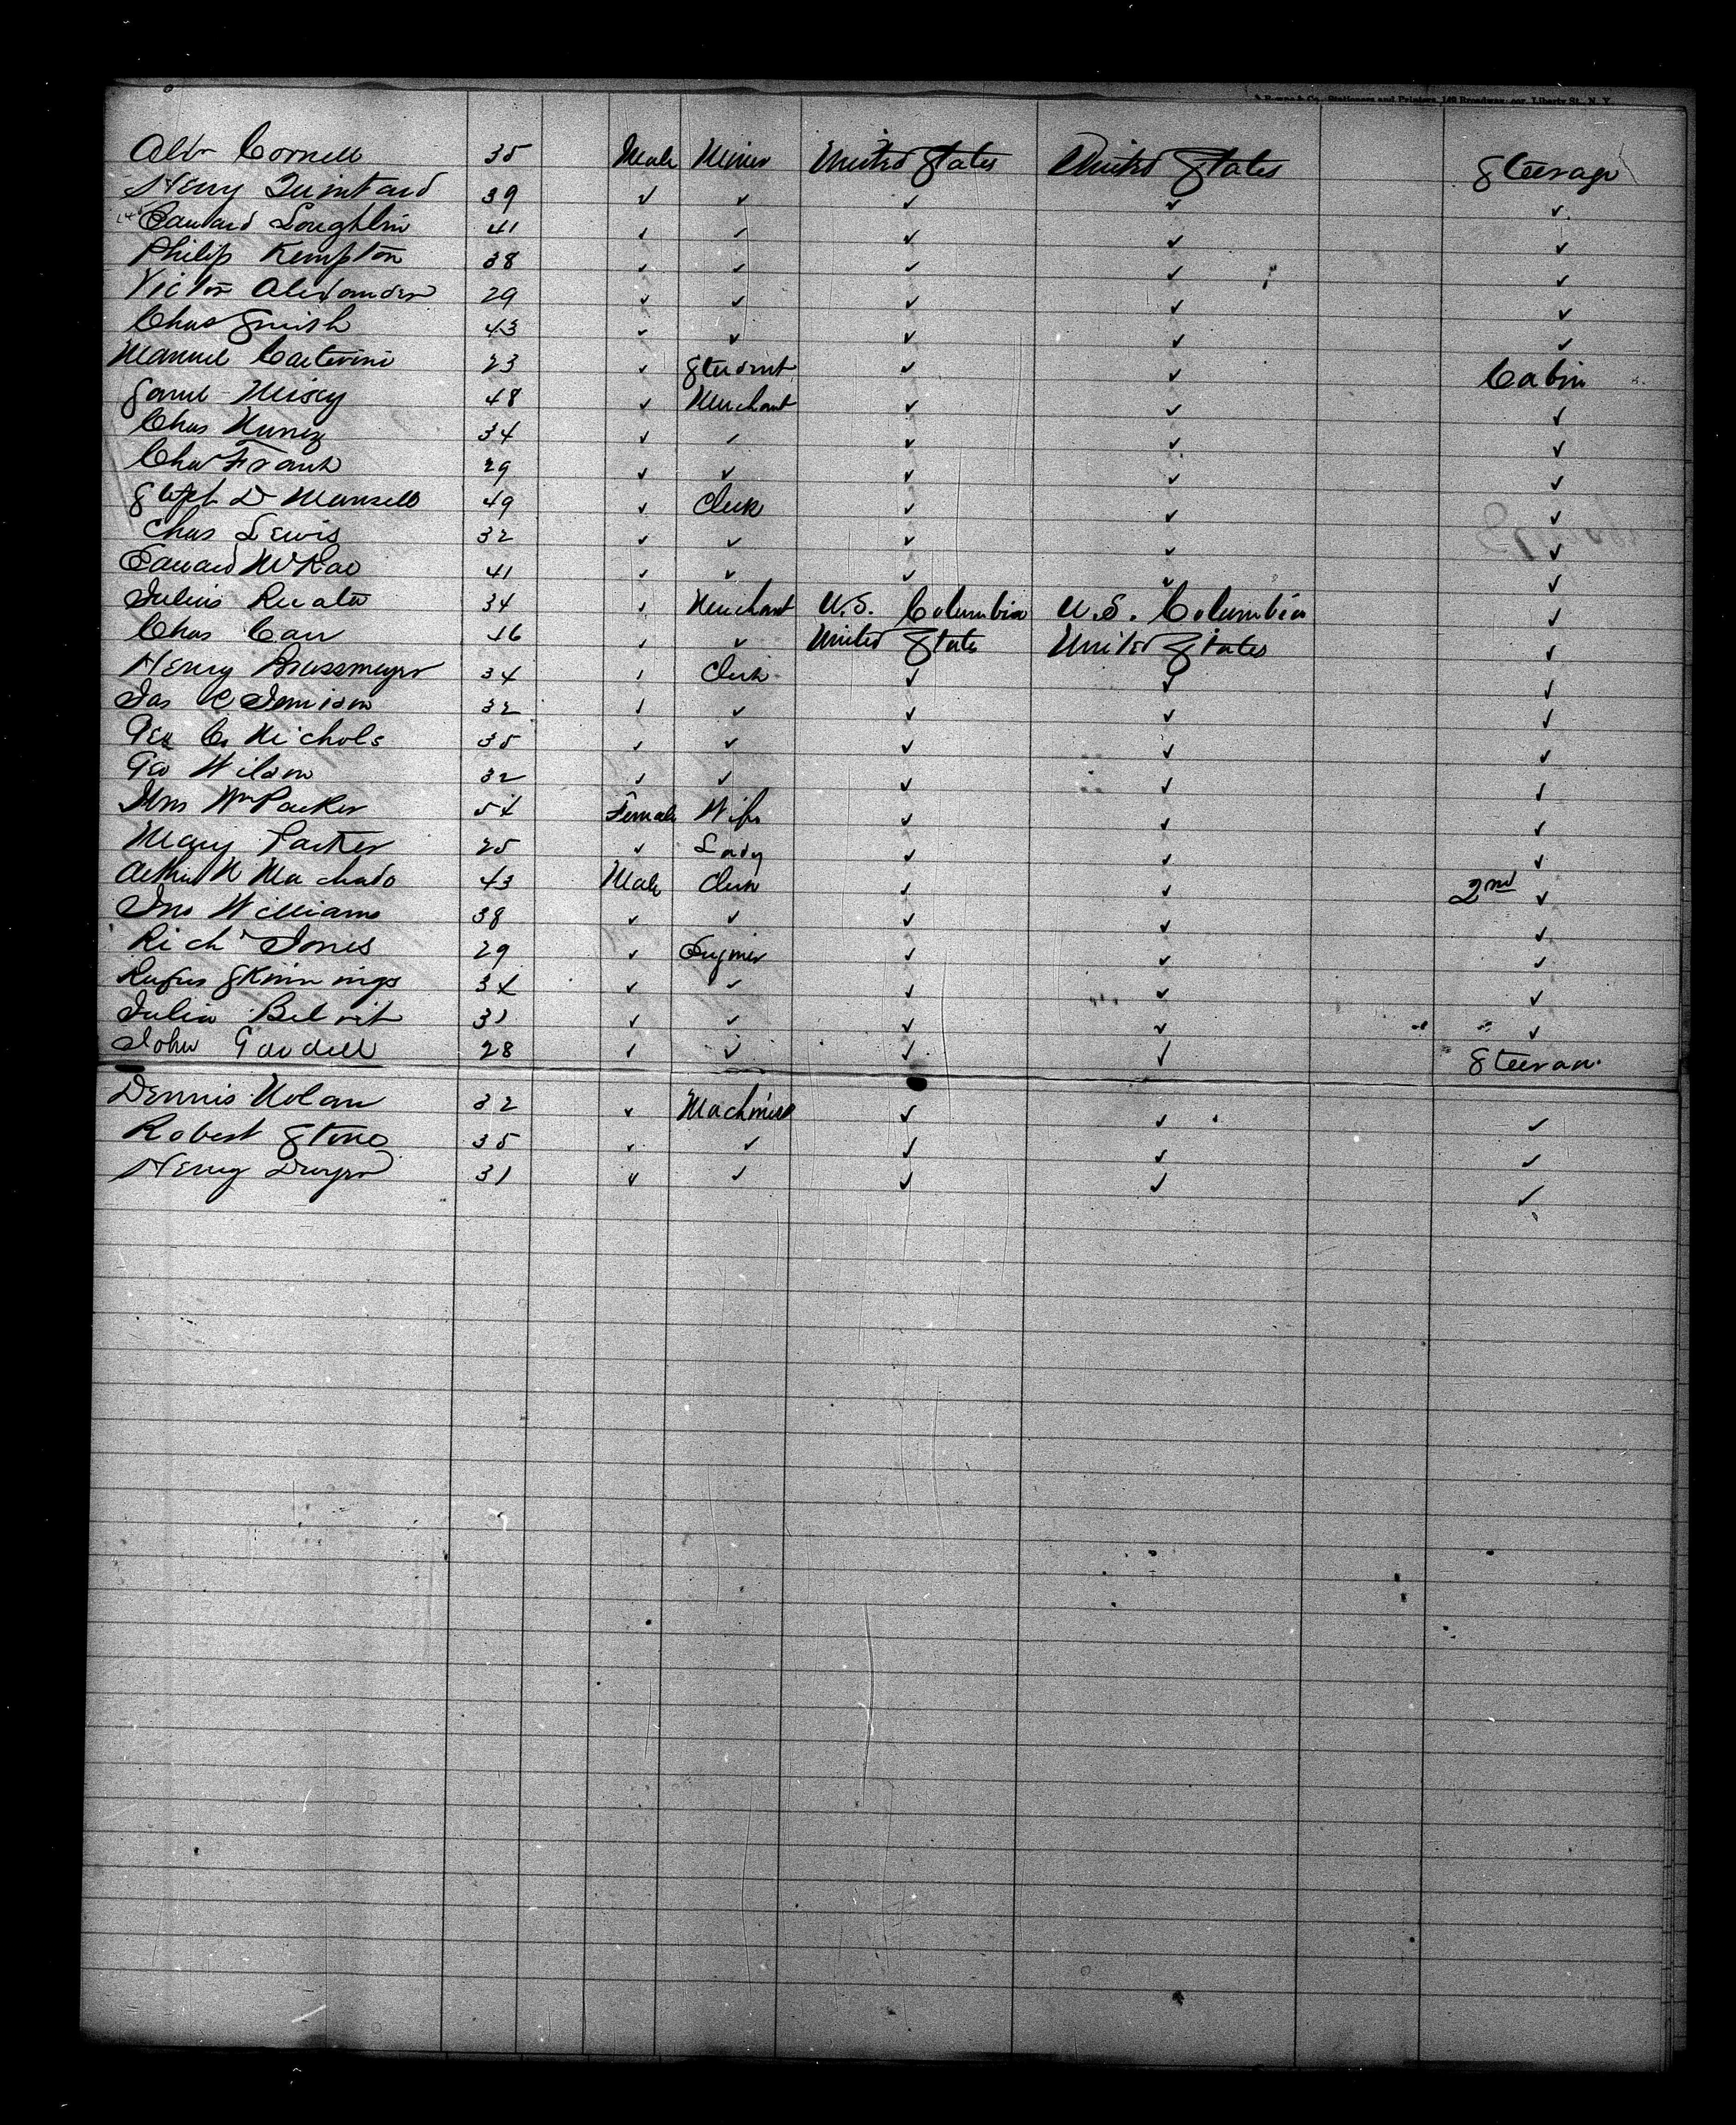 & Co. Stationers and Printers, 169 Broadway, cor. Liberty St., N. Y.
Cornell 35 Male Miner United States United States Steerage
Henry Quintard 39 ✓ ✓ ✓ ✓ ✓
Edward Loughlin 41 ✓ ✓ ✓ ✓ ✓
Philip Kempton 38 ✓ ✓ ✓ ✓ ✓
Victor Alexander 29 ✓ ✓ ✓ ✓ ✓
Chas Smith 43 ✓ ✓ ✓ ✓ ✓
Manuel 23 ✓ Student ✓ ✓ Cabin
Saml 48 ✓ Merchant ✓ ✓ ✓
Chas Nunez 34 ✓ ✓ ✓ ✓ ✓
Chas Frank 29 ✓ ✓ ✓ ✓ ✓
D Mansell 49 ✓ Clerk ✓ ✓ ✓
Chas Lewis 32 ✓ ✓ ✓ ✓ ✓
Edward McRae 41 ✓ ✓ ✓ ✓ ✓
Julius 34 ✓ Merchant U.S. Columbia U.S. Columbia ✓
Chas Carr 46 ✓ ✓ United State United States ✓
Henry Brussmeyer 34 ✓ Clerk ✓ ✓ ✓
Jas C Jemison 32 ✓ ✓ ✓ ✓ ✓
Geo C. Nichols 35 ✓ ✓ ✓ ✓ ✓
Geo Wilson 32 ✓ ✓ ✓ ✓ ✓
Mrs Wm Parker 54 Female Wife ✓ ✓ ✓
Mary Parker 25 ✓ Lady ✓ ✓ ✓
Arthur N Machado 43 Male Clerk ✓ ✓ 2nd ✓
Jno Williams 38 ✓ ✓ ✓ ✓ ✓
Richd Jones 29 ✓ Enginer ✓ ✓ ✓
Rufus Skinnings 34 ✓ ✓ ✓ ✓ ✓
Julia Beloit 31 ✓ ✓ ✓ ✓ ✓
John Gaudell 28 ✓ ✓ ✓ ✓ Steerage
Dennis Nolan 32 ✓ Machinist ✓ ✓ ✓
Robert Stone 35 ✓ ✓ ✓ ✓ ✓
Henry Dwyer 31 ✓ ✓ ✓ ✓ ✓